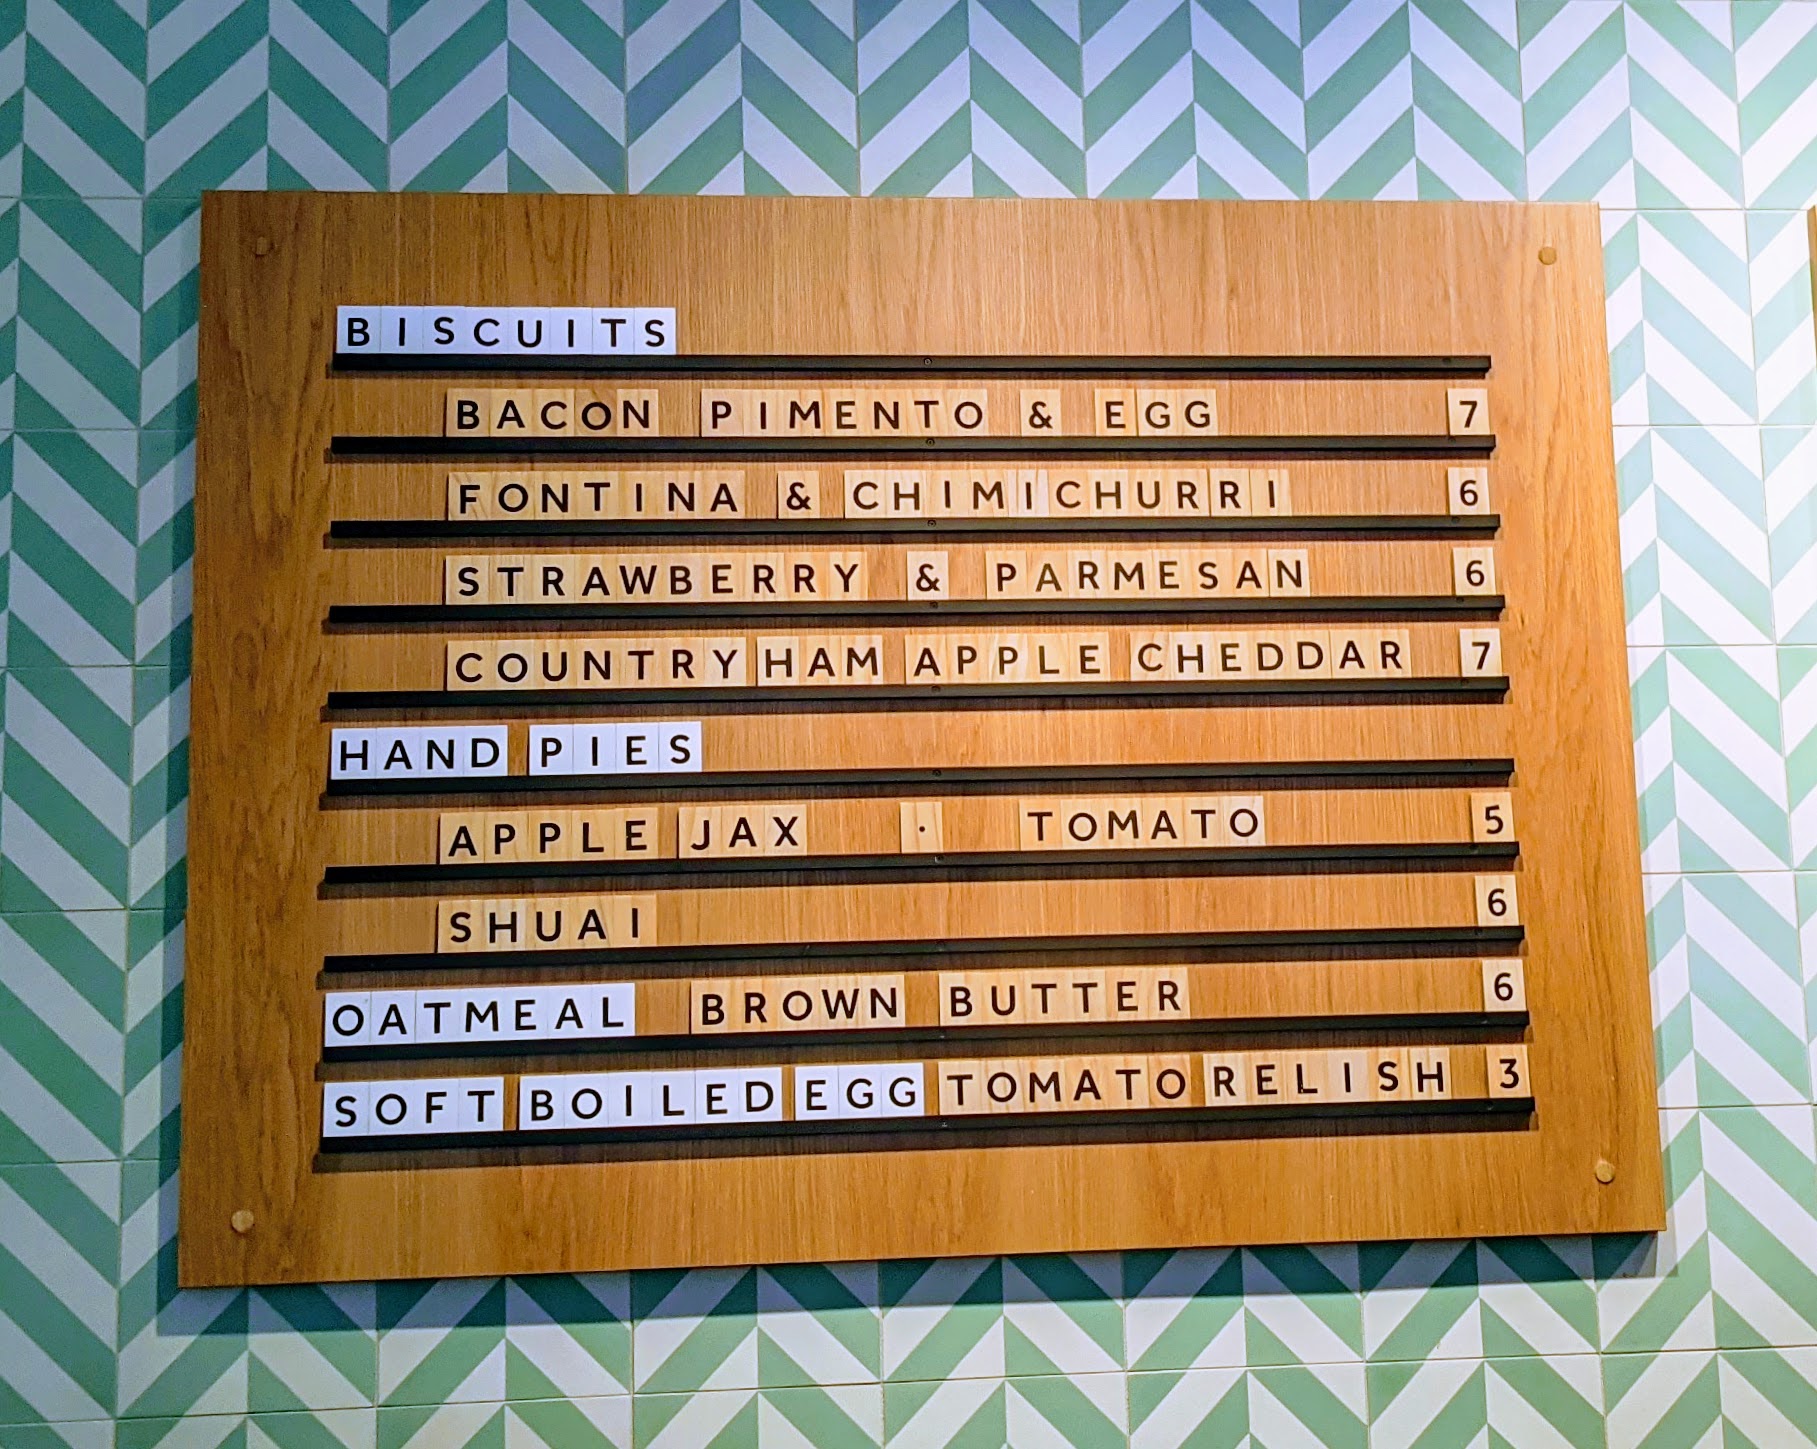 BISCUITS
BACON PIMENTO & EGG 7
FONTINA & CHIMICHURRI 6
STRAWBERRY & PARMESAN 6
COUNTRY HAM APPLE CHEDDAR 7
HAND PIES
APPLE JAX · TOMATO 5
SHUAI 6
OATMEAL BROWN BUTTER 6
SOFT BOILED EGG TOMATO RELISH 3